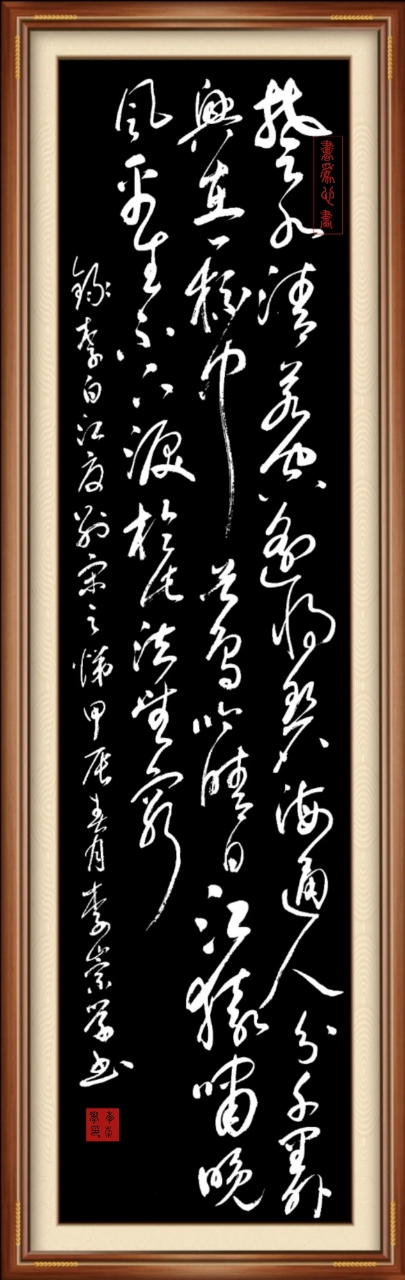 書為心畫
楚水清若空遙將碧海通人分千里外
興在一杯中谷鳥吟晴日江猿嘯晚
風平生不下淚於此泣無窮
錄李白江夏別宋之悌甲辰春月李崇學书